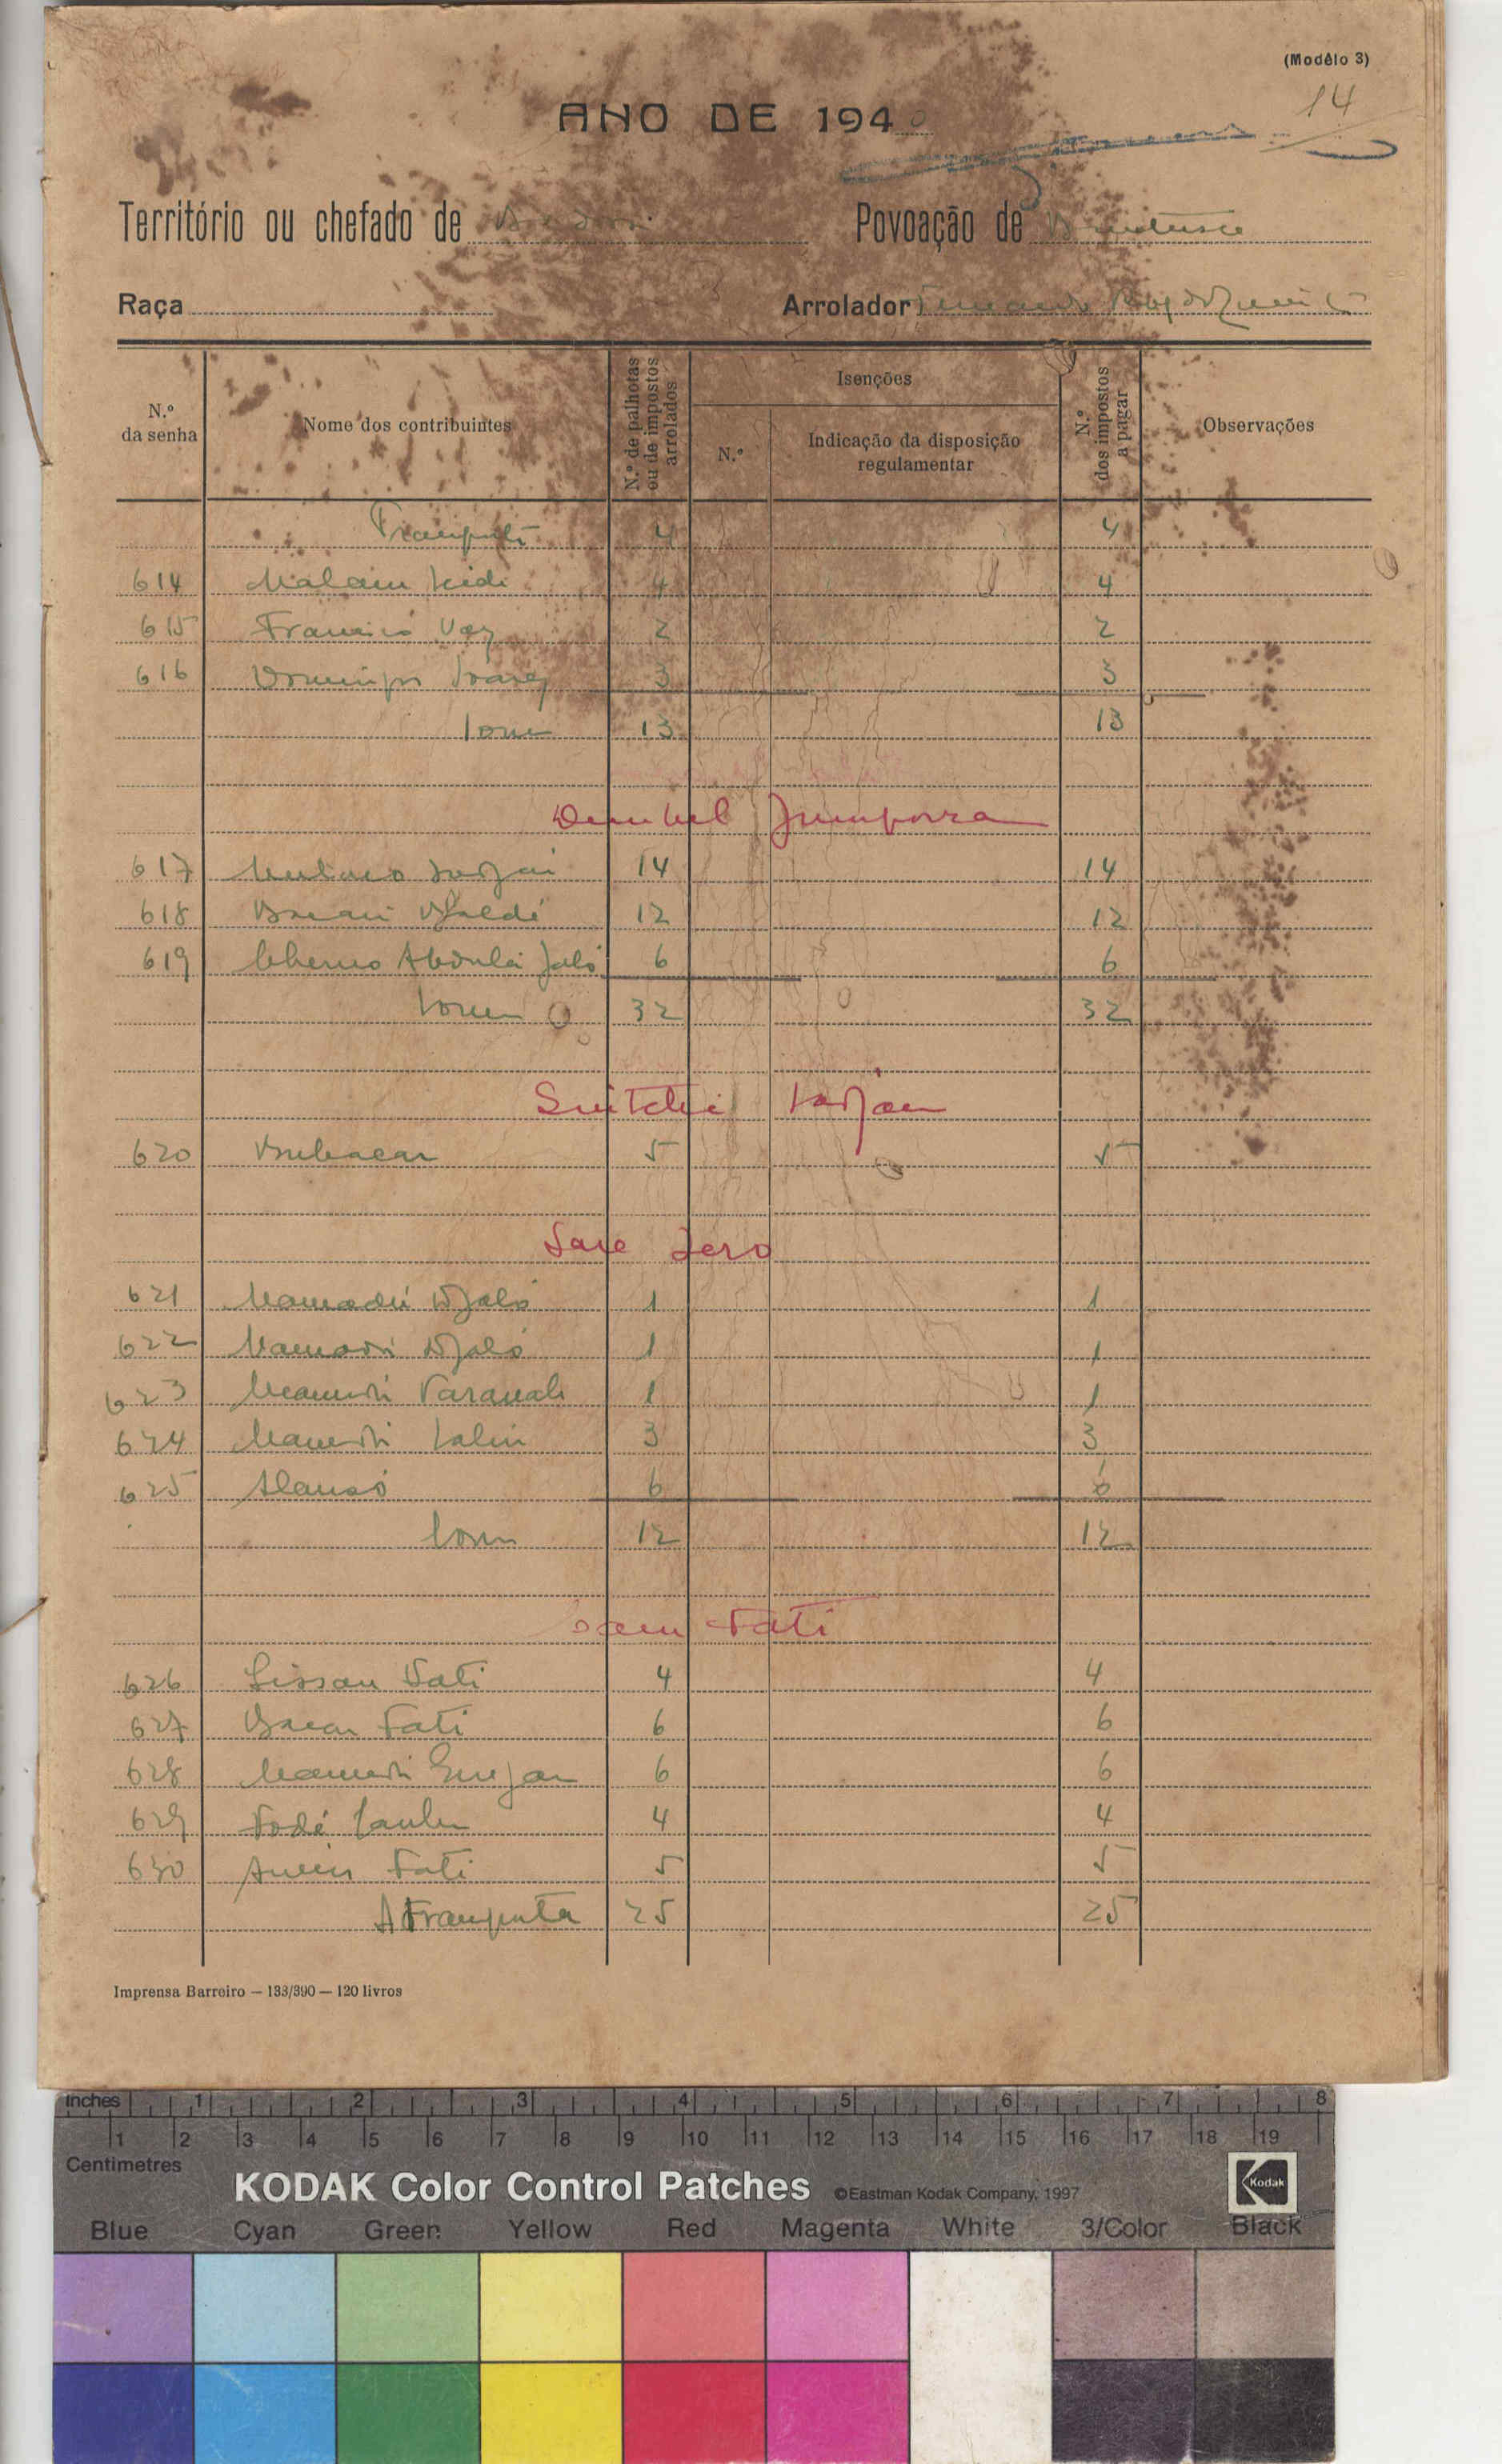 (Modêlo 3)
14
ANO DE 1940
Território ou chefado de Povoação de
Raça Arrolador Fernando
N.º da senha
Nome dos contribuintes
N.º de palhotas ou de impostos arrolados
Isenções
N.º
Indicação da disposição regulamentar
N.º dos impostos a pagar
Observações
4 4
614 Malam 4 4
615 Francisco Vaz 2 2
616 Domingos Soares 3 3
Soma 13 13
Dembel Jumporra
617 14 14
618 Bacari Djaldé 12 12
619 Cherno Abdulai Jaló 6 6
Soma 32 32
Sintchi
620 Bubacar 5 5
Sare Jero
621 Mamadú Djaló 1 1
622 Mamadú Djaló 1 1
623 1 1
624 3 3
625 Alansó 6 6
Soma 12 12
Fati
626 Fati 4 4
627 Bacar Fati 6 6
628 6 6
629 Fodé 4 4
630 Fati 5 5
A Transporta 25 25
Imprensa Barreiro — 133/390 — 120 livros
Inches 1 2 3 4 5 6 7 8
1 2 3 4 5 6 7 8 9 10 11 12 13 14 15 16 17 18 19
Centimetres
KODAK Color Control Patches ©Eastman Kodak Company, 1997 Kodak
Blue Cyan Green Yellow Red Magenta White 3/Color Black